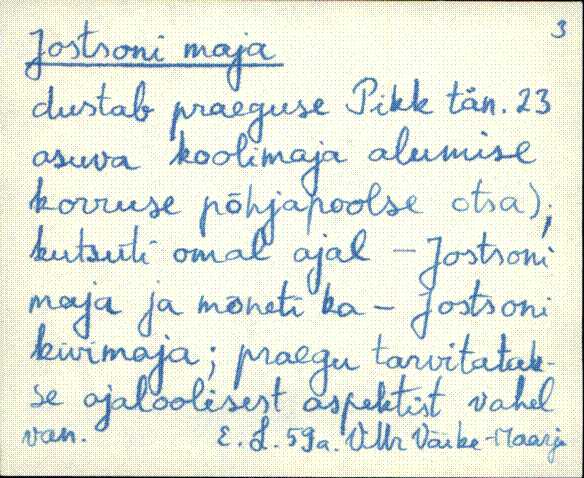 3
Jostsoni maja
dustab praeguse Pikk tän. 23
asuva koolimaja alumise
korruse põhjapoolse otsa);
kutsuti omal ajal – Jostsoni
maja ja mõneti ka – Jostsoni
kivimaja; praegu tarvitatak-
se ajaloolisest aspektist vahel
van. E. L. 59a. VMr Väike-Maarja